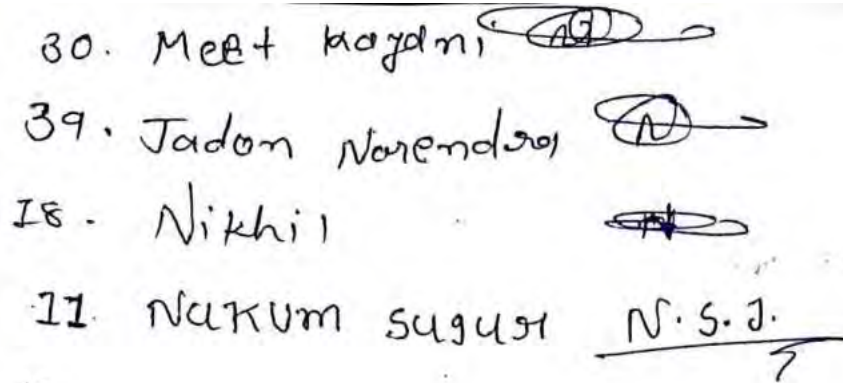 30. Meet
39. Jadon Narendra
18. Nikhil
11 Nakum sagar N.S.J.